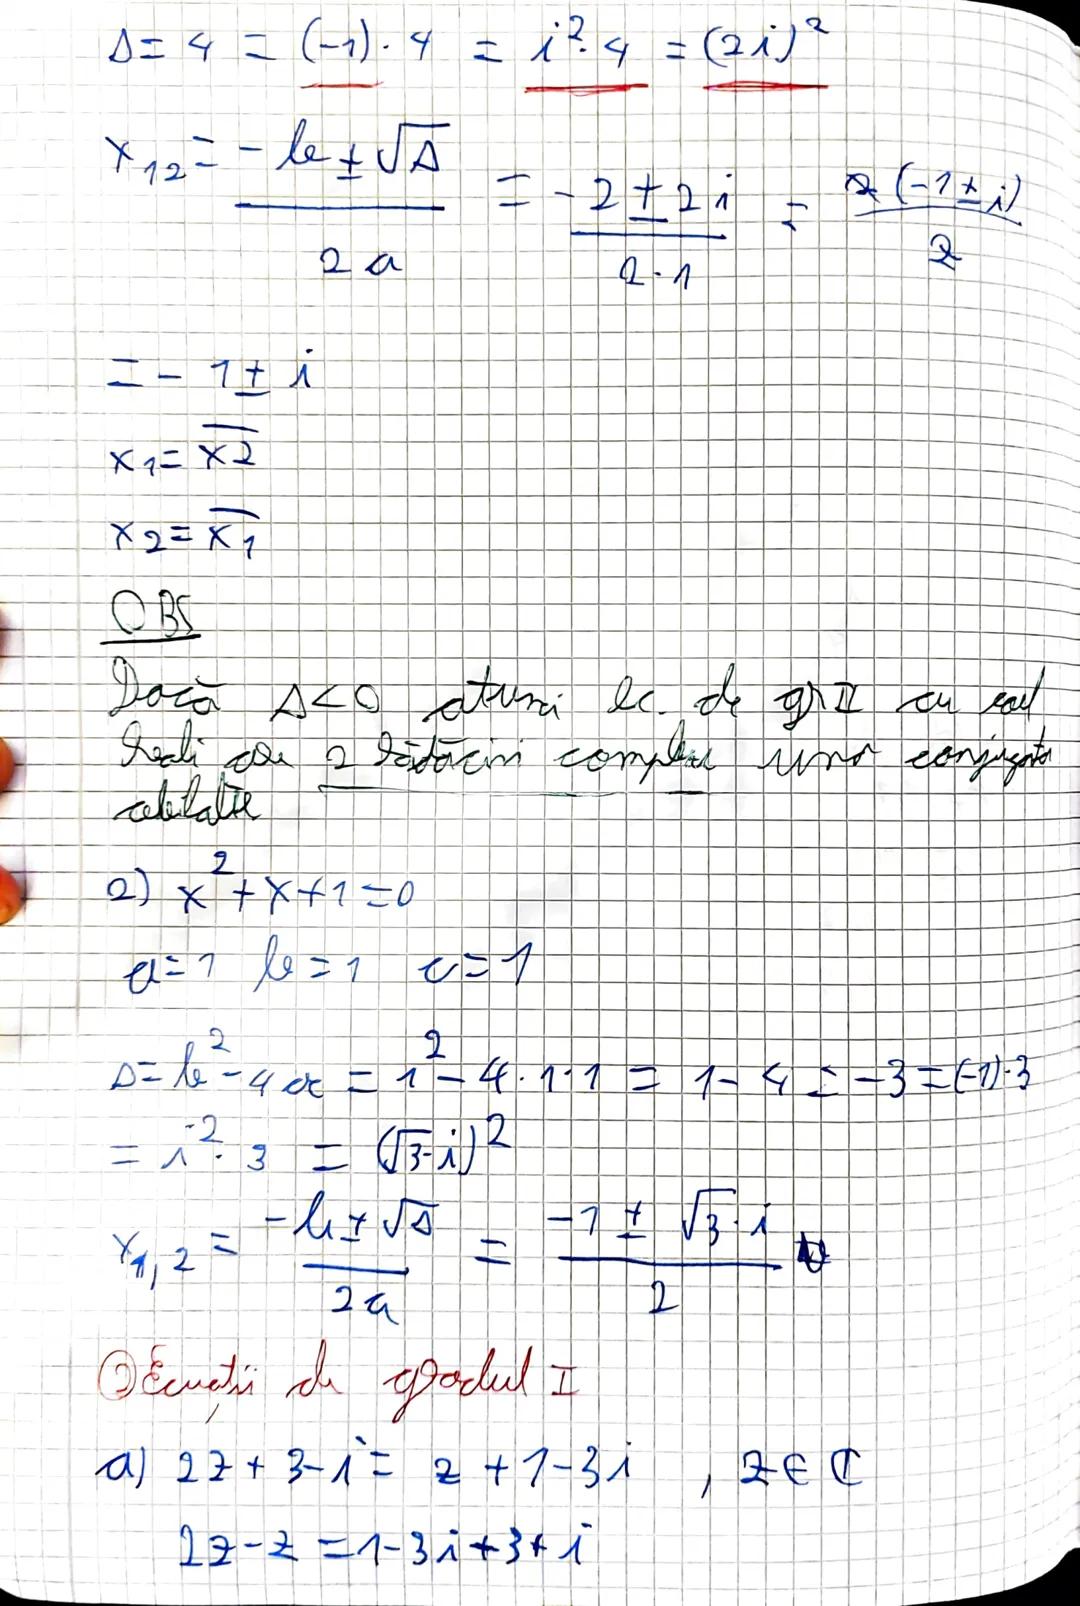 Δ = 4 = (-1)·4 = i²·4 = (2i)²
x₁₂ = (-b ± √Δ) / 2a = (-2 ± 2i) / 2·1 = 2(-1 ± i) / 2
= -1 ± i
x₁ = x̅2̅
x₂ = x̅₁̅
OBS
Dacă Δ<0 atunci ec. de gr II cu
reali are 2 rădăcini complexe una conjugata
celeilalte
2) x² + x + 1 = 0
a = 1 b = 1 c = 1
Δ = b² - 4ac = 1² - 4·1·1 = 1 - 4 = -3 = (-1)·3
= i²·3 = (√3·i)²
x₁,₂ = (-b ± √Δ) / 2a = (-1 ± √3·i) / 2
Ecuații de gradul I
a) 2z + 3 - i = z + 1 - 3i , z ∈ ℂ
2z - z = 1 - 3i + 3 + i